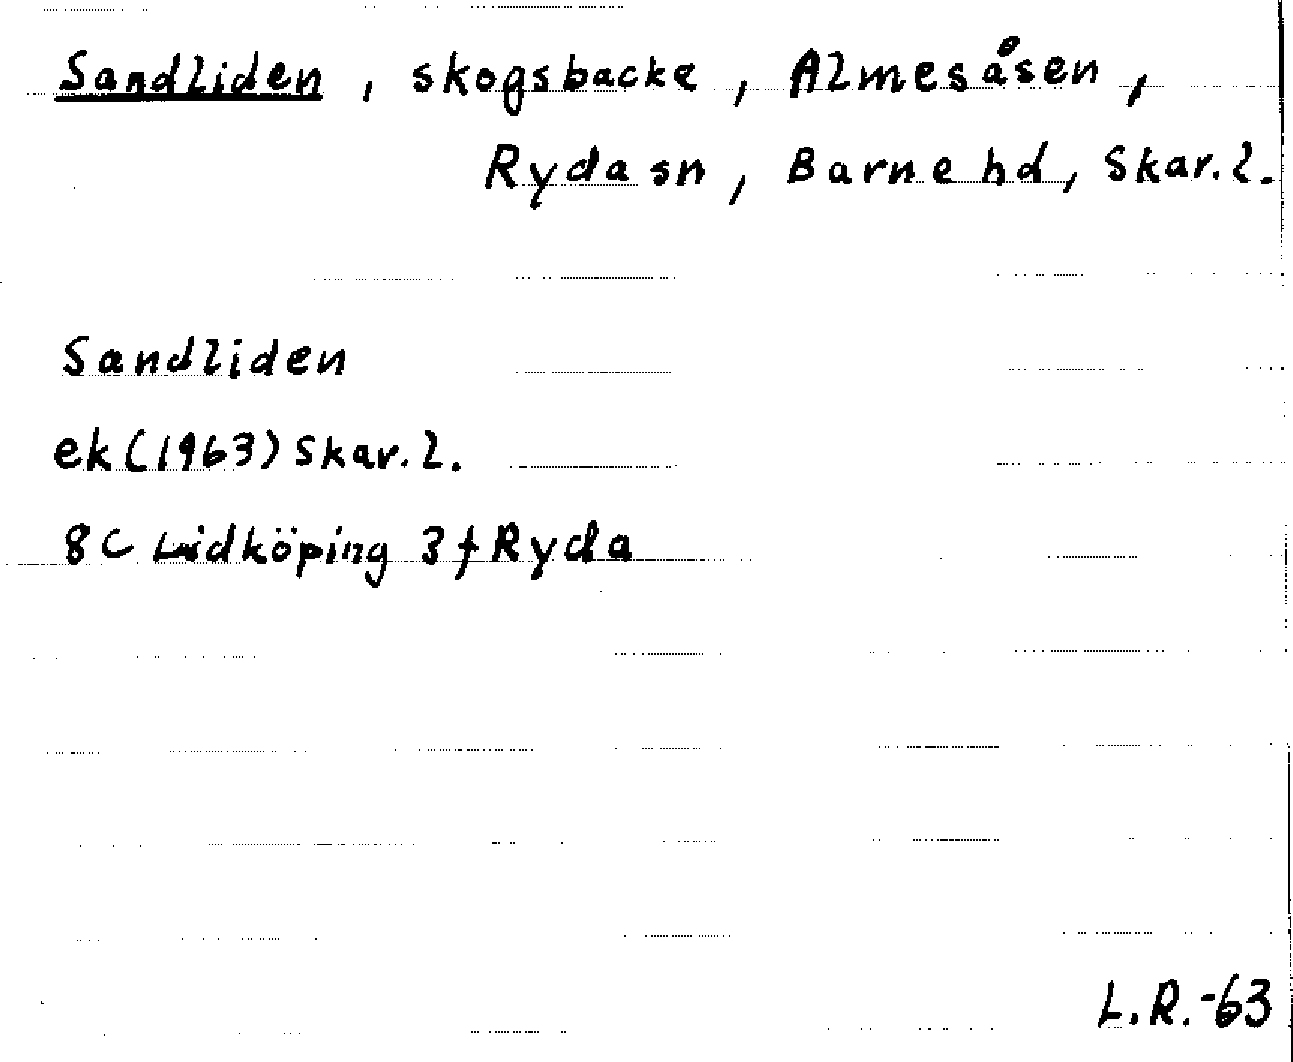 Sandliden, skogsbacke, Almesåsen,
Ryda sn, Barne hd, Skar. l.
Sandliden
ek (1963) Skar. l.
8C Lidköping 3f Ryda
L.R.-63